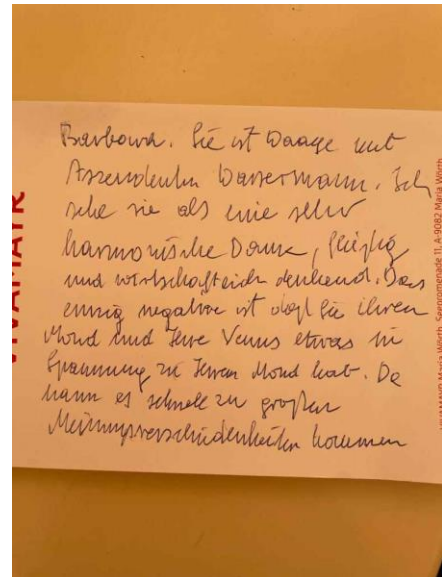 Barbara. Sie ist Waage mit
Aszendenten Wassermann. Ich
sehe sie als eine sehr
harmonische Dame, fleißig
und wirtschaftlich denkend. Das
einzig negative ist daß Sie ihren
Mond und Ihre Venus etwas in
Spannung zu Ihrem Mond hat. Da
kann es schnell zu großen
Meinungsverschiedenheiten kommen
VIVAMAYR
VIVAMAYR Maria Wörth, Seepromenade 11, A-9082 Maria Wörth